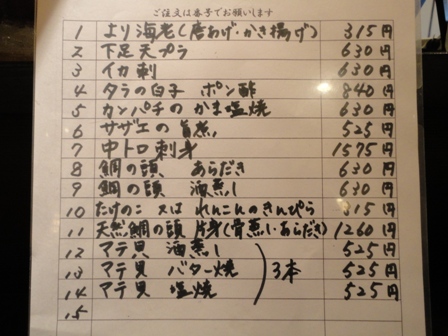 ご注文は番号でお願いします
1 より海老(唐あげ・かき揚げ) 315円
2 下足天プラ 630円
3 イカ刺 630円
4 タラの白子 ポン酢 840円
5 カンパチのかま塩焼 630円
6 サザエの旨煮 525円
7 中トロ刺身 1575円
8 鯛の頭 あらだき 630円
9 鯛の頭 酒蒸し 630円
10 たけのこ 又は れんこんのきんぴら 315円
11 天然鯛の頭 片身(骨蒸し・あらだき) 1260円
12 マテ貝 酒蒸し 525円
13 マテ貝 バター焼 3本 525円
14 マテ貝 塩焼 525円
15